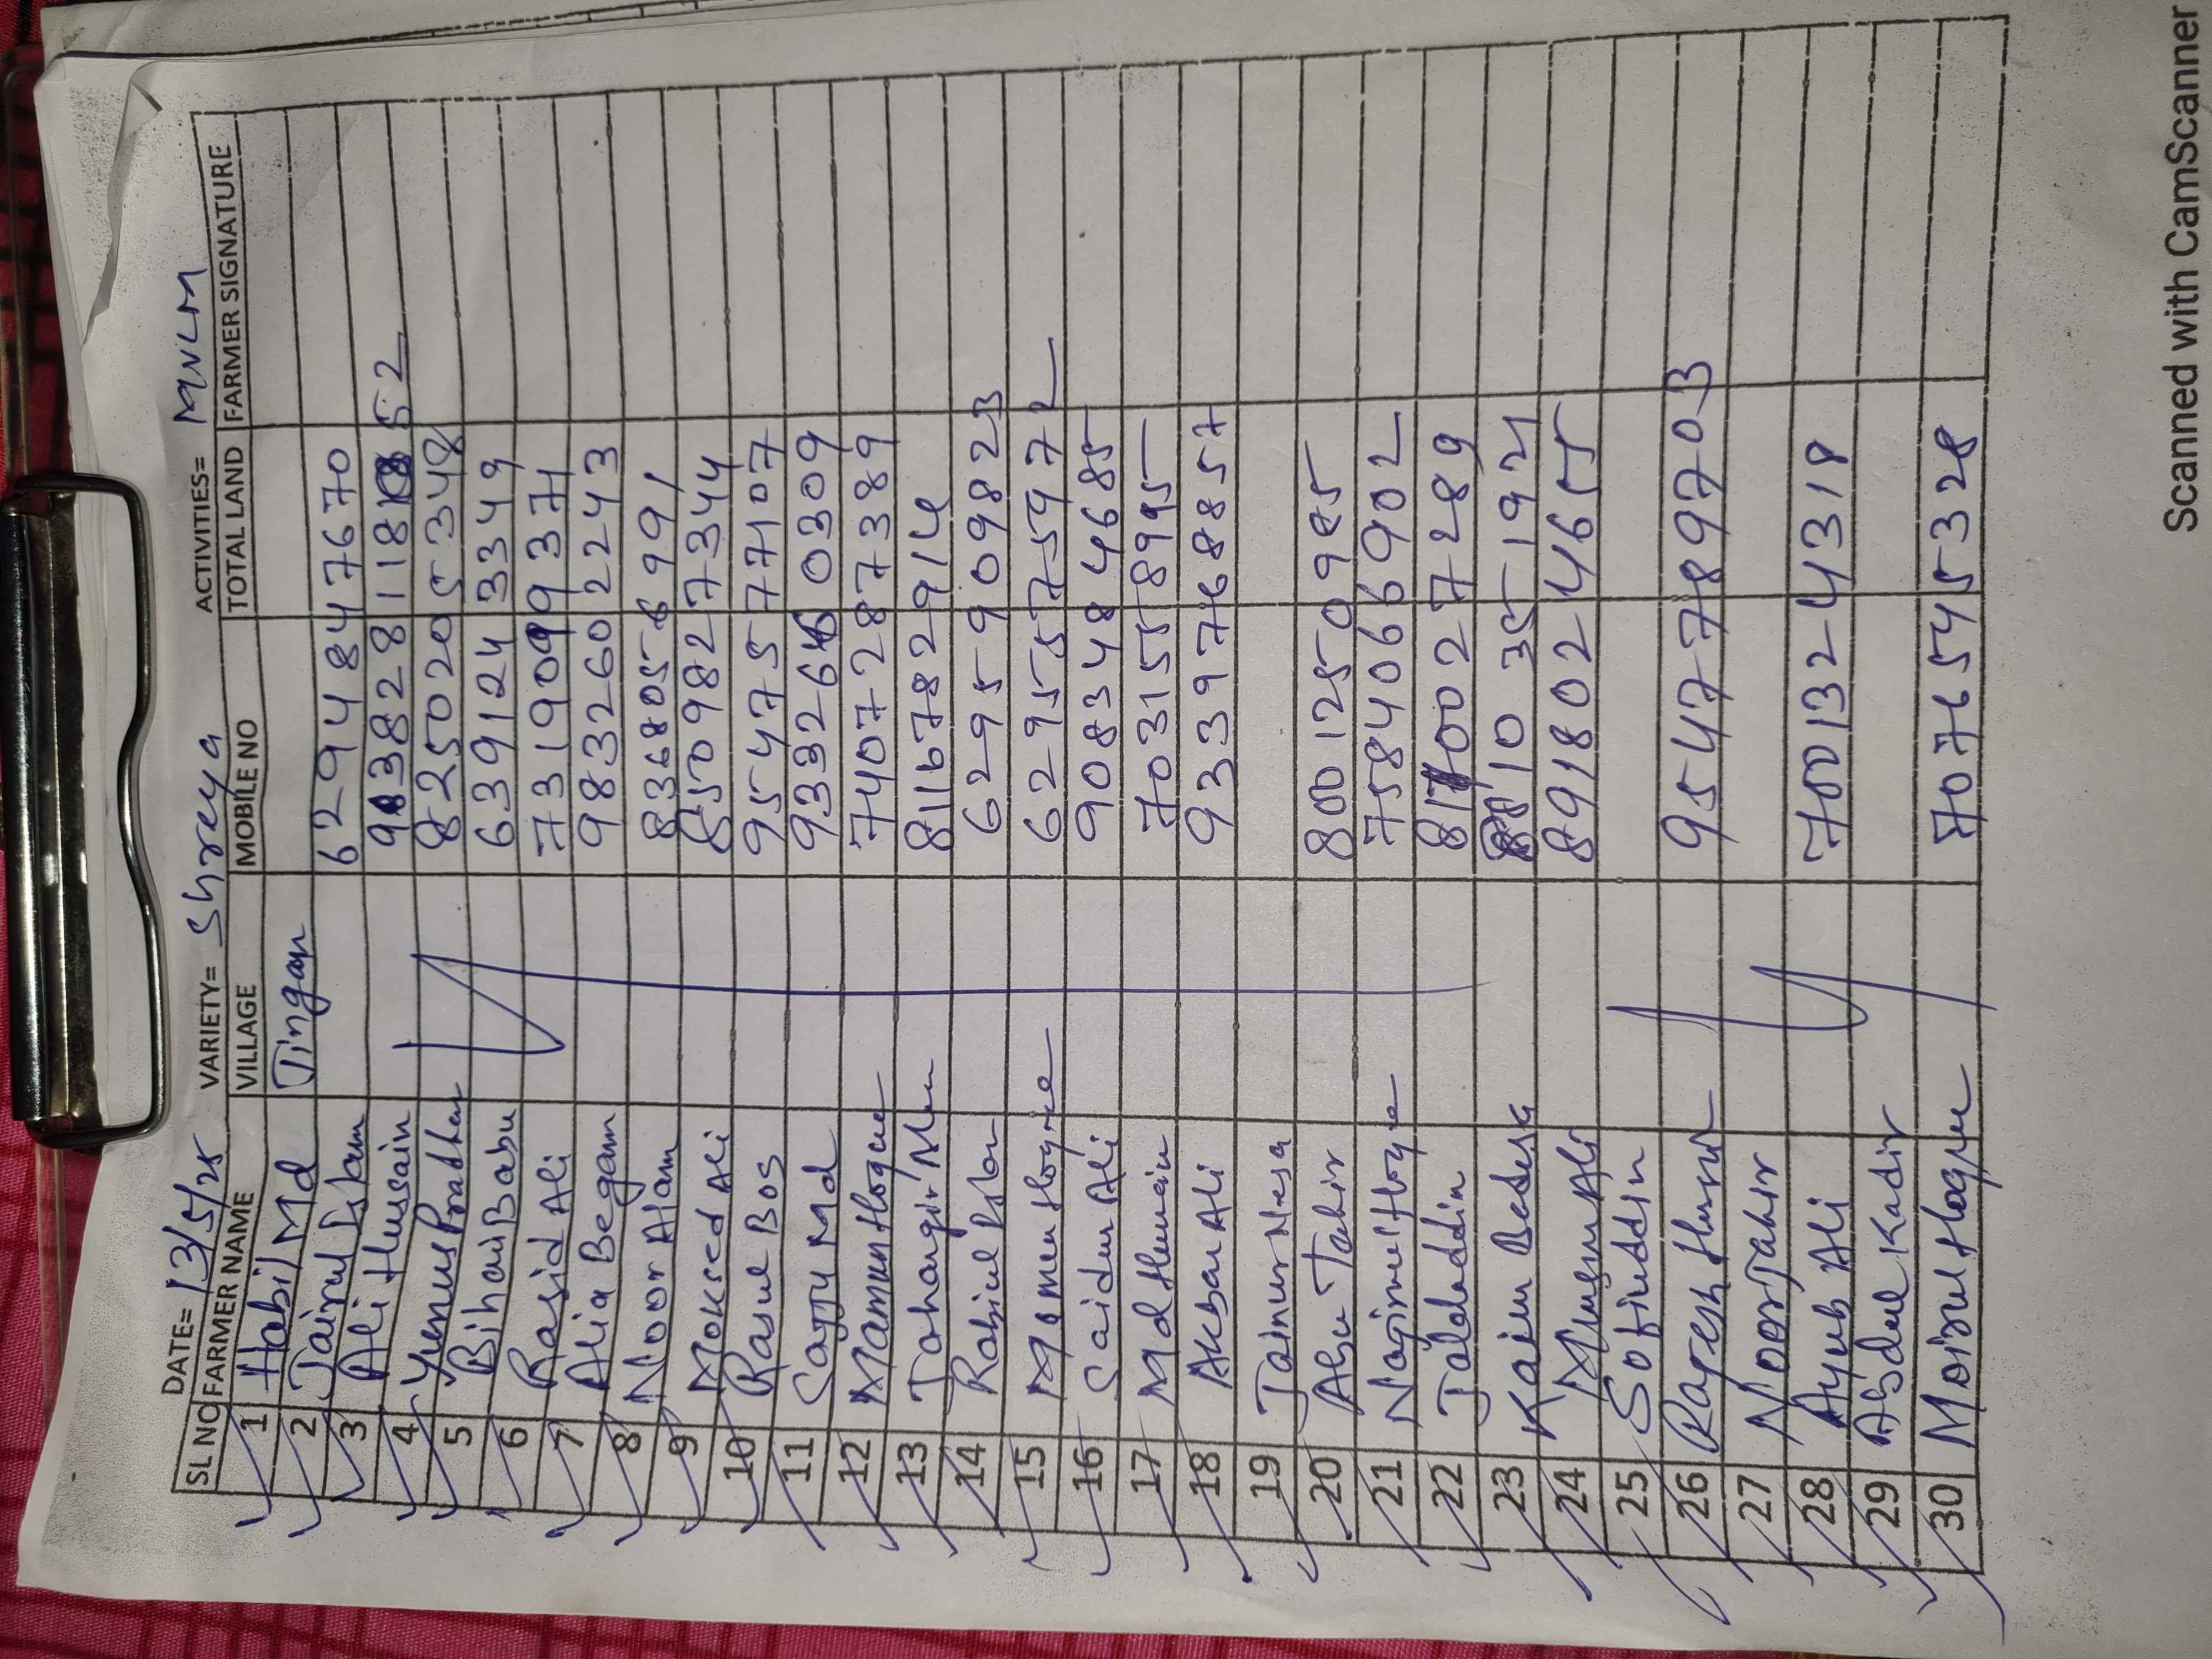 DATE= 13/5/25 VARIETY= Shreya ACTIVITIES= MVLM
SL NO FARMER NAME VILLAGE MOBILE NO TOTAL LAND FARMER SIGNATURE
1 Habil Md Tingao
2 Jainul Islam 6294847670
3 Ali Hussain 9382811852
4 Yunus Pradhan 8250205348
5 Bihari Babu 6391243349
6 Rasid Ali 7319099371
7 Alia Begam 9832602243
8 Noor Alam 8368056991
9 Moksed Ali 8509827344
10 Rasul Bos 9547577107
11 Sajju Md 9332660309
12 Mamun Hoque 7407287389
13 Jahangir Alam 8116782914
14 Rabiul Islam 6295909823
15 Momen Hoque 6295575972
16 Saidur Ali 9083484685
17 Md Hussain 7031558995
18 Akbar Ali 9339768857
19 Jainur Nesa
20 Abu Tahir 8001250985
21 Najmul Hoque 7584066902
22 Jalaluddin 8170027289
23 Kaim Badsa 8810351921
24 Mungsur Ali 8918024655
25 Sofiuddin
26 Rajesh Hussen 9547789703
27 Noor Tahir
28 Ayub Ali 7001324318
29 Abdul Kadir
30 Moinul Hoque 7076545328
Scanned with CamScanner